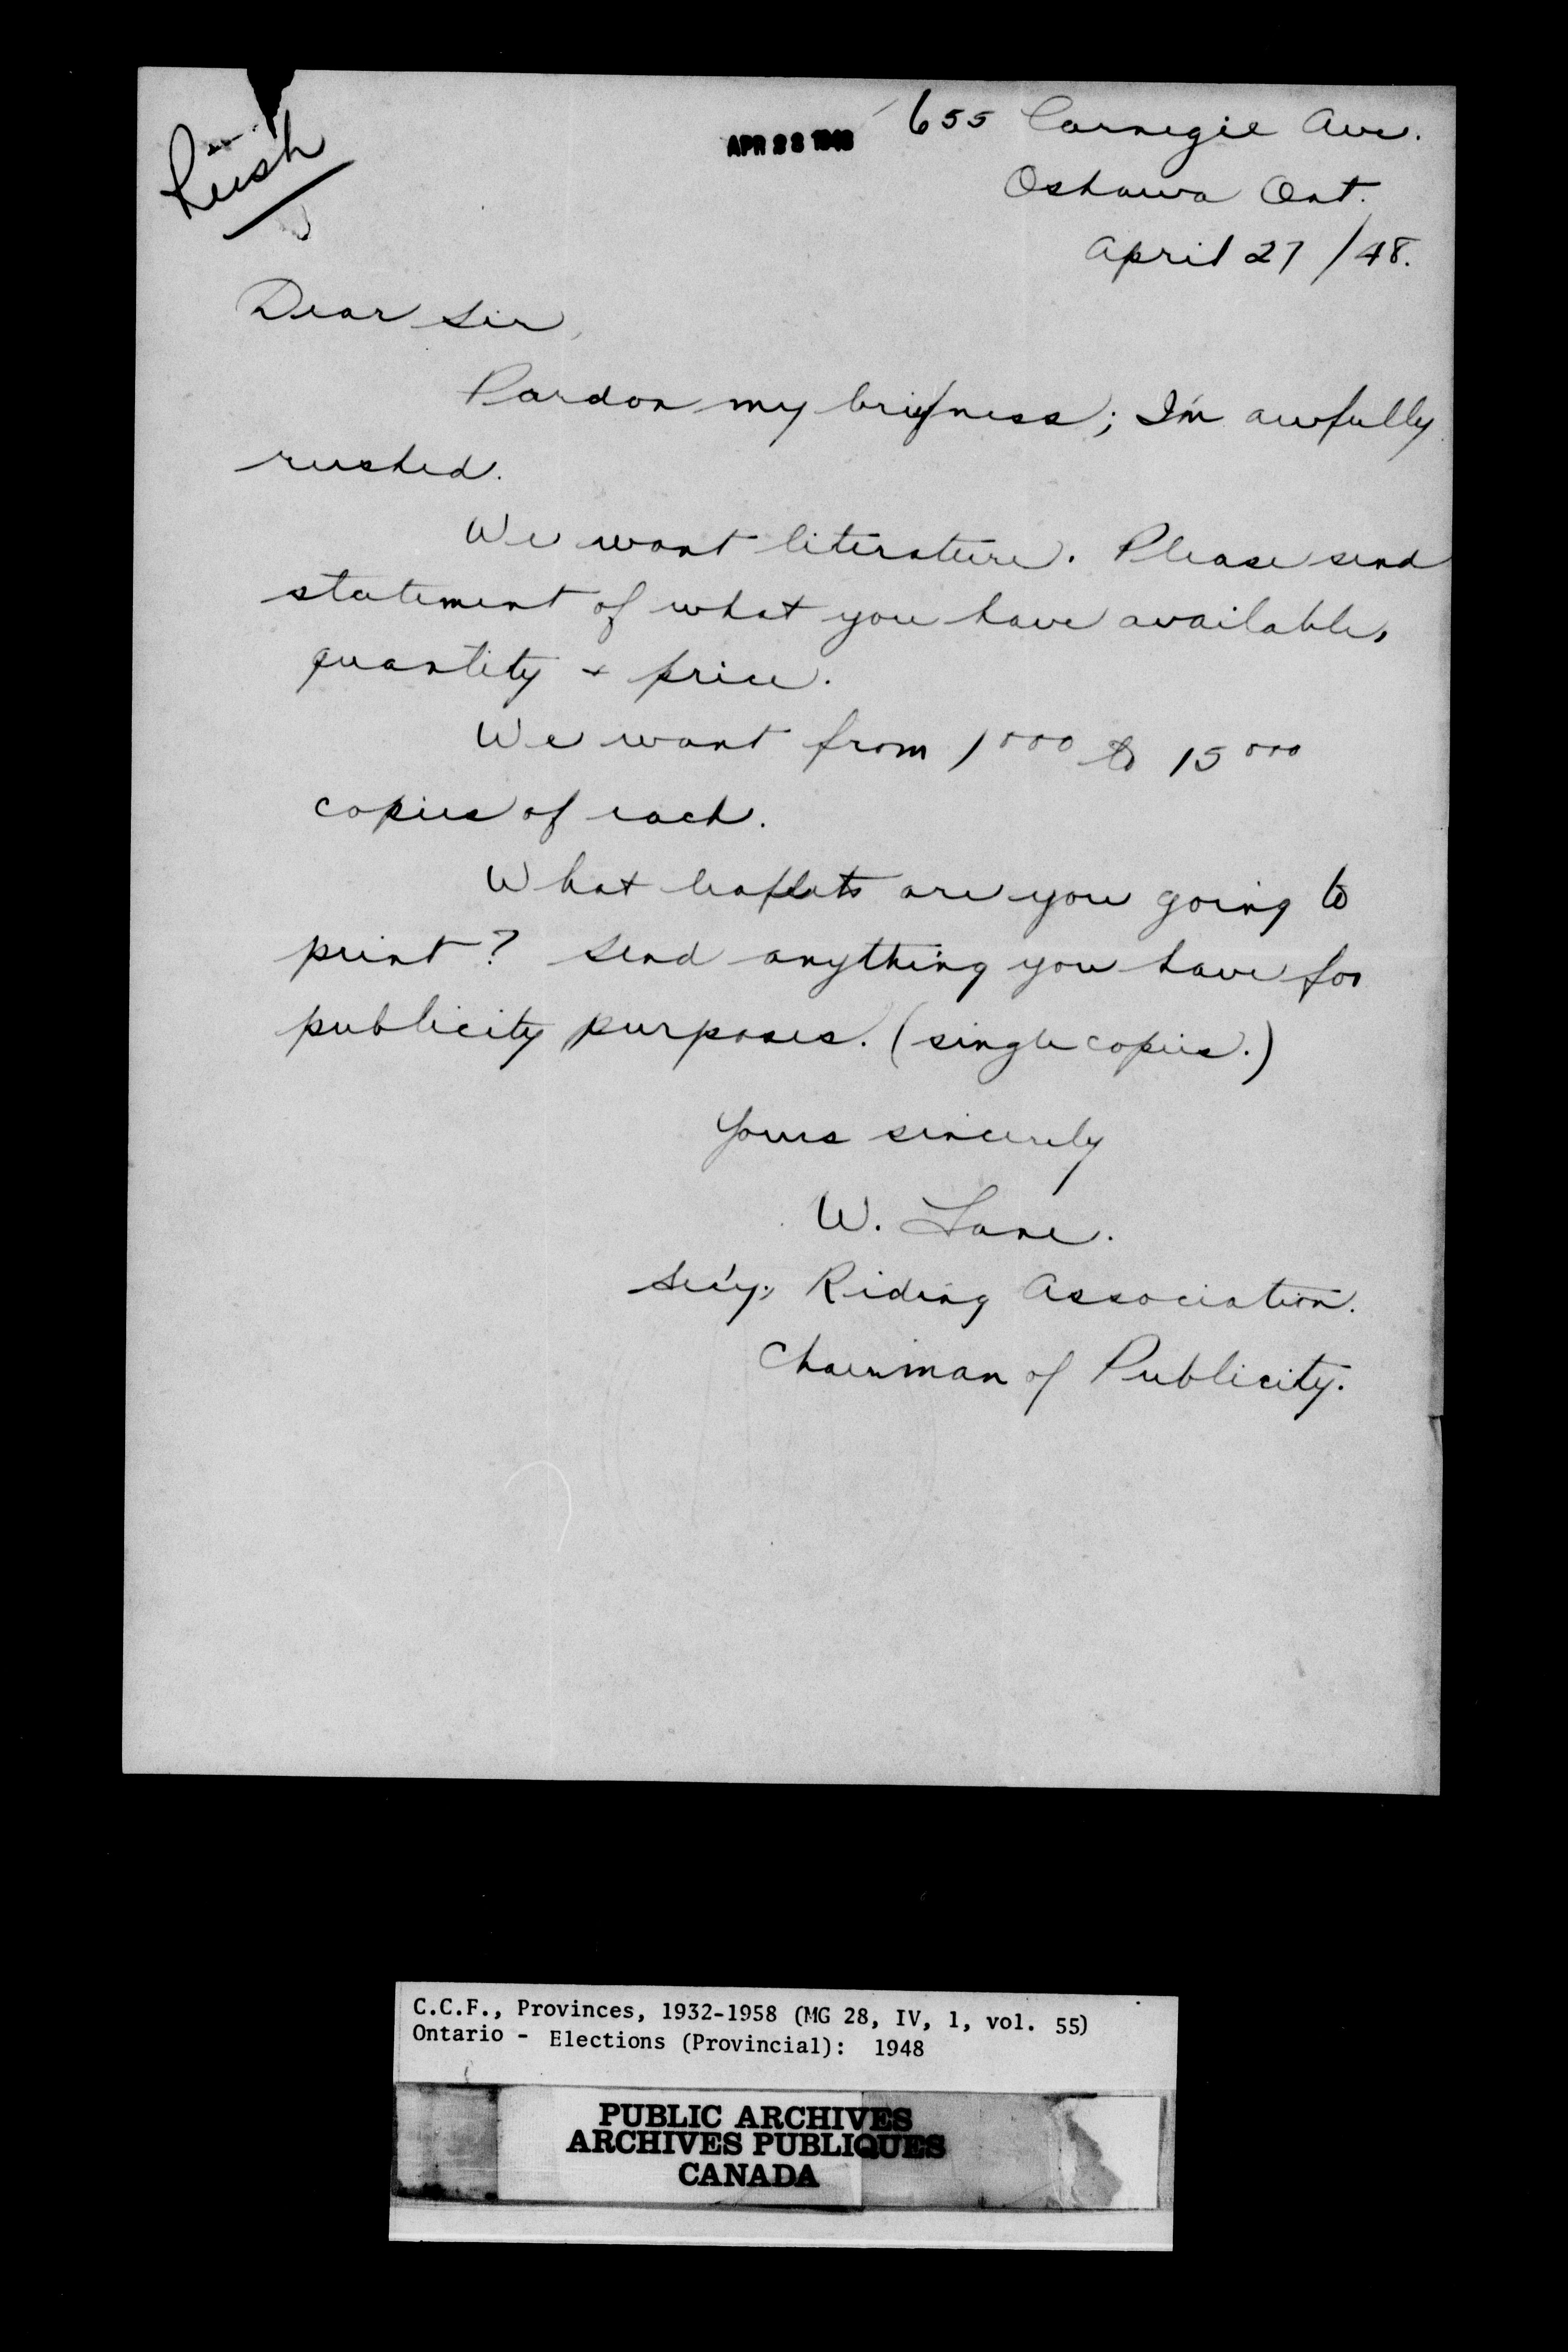 Rush
APR 28 1948
655 Carnegie Ave.
Oshawa Ont.
April 27/48.
Dear Sir,
Pardon my briefness; I'm awfully
rushed.
We want literature. Please send
statement of what you have available,
quantity + price.
We want from 1000 to 15000
copies of each.
What leaflets are you going to
print? Send anything you have for
publicity purposes. (single copies.)
Yours sincerely
W. Lane.
Sec'y, Riding Association.
Chairman of Publicity.
C.C.F., Provinces, 1932-1958 (MG 28, IV, 1, vol. 55)
Ontario - Elections (Provincial): 1948
PUBLIC ARCHIVES
ARCHIVES PUBLIQUES
CANADA